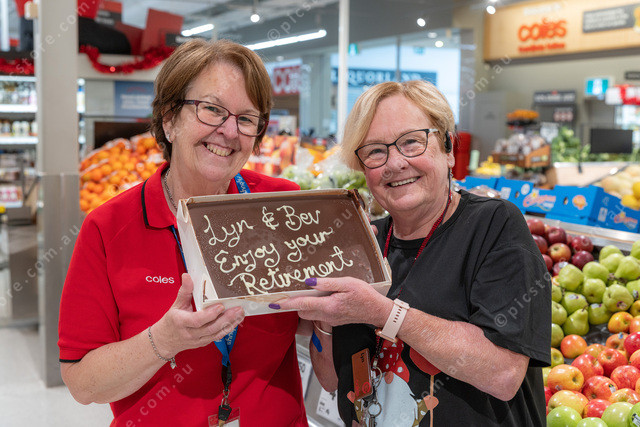 coles
LIQUORLAND
coles
Lyn & Bev
Enjoy your
Retirement
© picstore.com.au